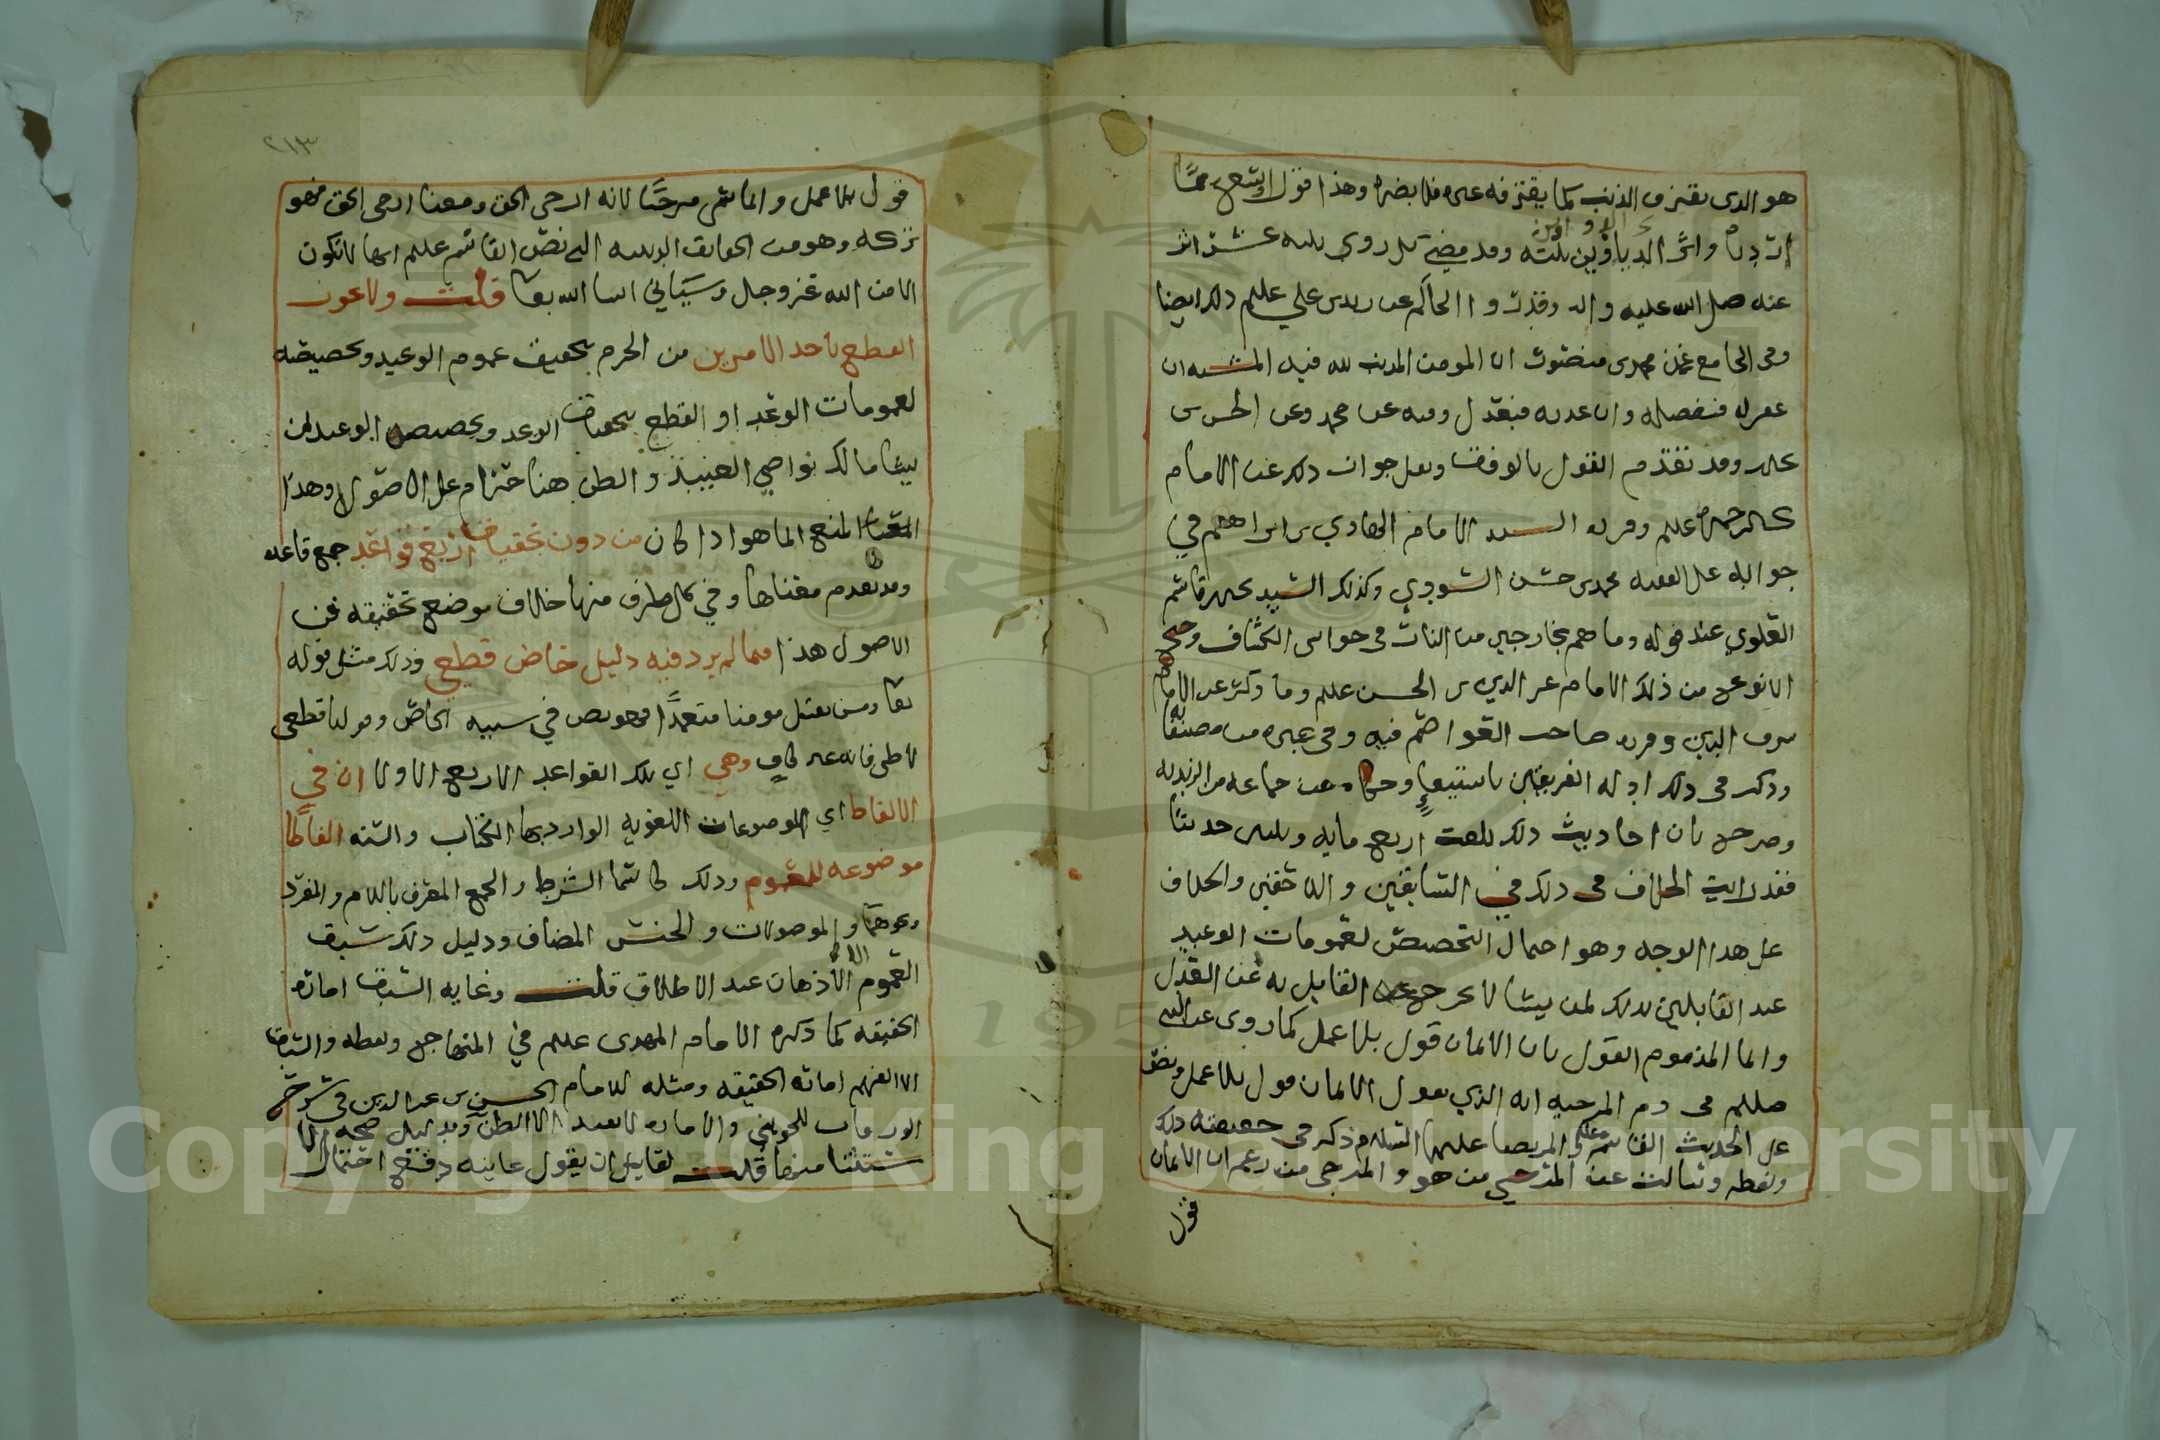 هو الدى يقترف الذنب كما يقترفه غيره فلا يضره وهذا قول
عنه صلى الله عليه واله وقدرت و الحاكم عن زيد بن علي عليلم ذلك ايضا
وفى الجامع عن محمد بن منصور ان المومن المدنب لله فيه المشيه ان
غفر له فبفضله وان عذبه فبعدل ومثله عن محمد وعن الحسن بن
يحيى وقد تقدم القول بالوقف ونقل جواز ذلك عن الامام
يحيى بن حمزه عليلم وقرره السيد الامام الهادي بن ابراهيم في
جوابه على الفقيه محمد بن حسن السودي وكذلك السيد يحيى بن قاسم
العلوي عند قوله وما هم بخارجين من النار فى حواشى الكشاف وحكى
الانواع من ذلك الامام عز الدين بن الحسن عليلم وما وكثر عن الامام
شرف الدين وقرره صاحب العواصم فيه وفى غيره من مصنفاته
وذكر فى ذلك ادله الفريقين باستيعاب وحكاه عن جماعه من الزيديه
وصرح بان احاديث ذلك بلغت اربع مايه وثلثين حديثا
فقد رايت الخلاف فى ذلك في السابقين واللاحقين والخلاف
على هذا الوجه وهو احتمال التخصيص لعمومات الوعيد
عند القايلين بذلك لمن يشا لا يخرج القايل به عن العدل
وانما المذموم القول بان الايمان قول بلا عمل كما روى عن النبي
صللم فى ذم المرجيه انه الذي يقول الايمان قول بلا عمل ونص
على الحديث القاسم و المرتضا عليهما السلام ذكر فى حقيقته ذلك
ولفظه وسالت عن المرجي من هو والمرجى من زعم ان الايمان
قول
٢١٣
قول بلا عمل وانما سمى مرجيا لانه ارجى الحق ومعنا ارجى الحق فهو
تركه وهو من الحقايق الدينيه التى نص القاسم عليلم انها لا تكون
الا من الله عز وجل وسياتي انشا الله تعالى قلت ولا يجوز
القطع باحد الامرين من الجزم بتحقيق عموم الوعيد وتخصيصه
لعمومات الوعد او القطع بتحقيق الوعد وتخصيص الوعيد لمن
يشا مالك نواصي العبيد والظن هنا حرام على الاصول وهذا
المقتضا المنع انما هو اذا كان من دون تحقيق اربع قواعد جمع قاعده
وقد تقدم معناها وفي كل طرف منها خلاف موضع تحقيقه فن
الاصول هذا فيما لم يرد فيه دليل خاص قطعي وذلك مثل قوله
تعالى ومن يقتل مومنا متعمدا فهو نص في سببه الخاص وقولنا قطعى
لا ظنى فانه غير كاف وهي اي تلك القواعد الاربع الاولى ان في
الالفاظ اي الموضوعات اللغويه الوارد بها الكتاب والسنه الفاظا
موضوعه للعموم وذلك كاسما الشرط والجمع المعرف باللام والمفرد
ونحوهما والموصولات والجنس المضاف ودليل ذلك سبق
العموم الى الاذهان عند الاطلاق قلت وغايه السبق اماره
الحقيقه كما ذكره الامام المهدى عليلم في المنهاج ولفظه والسبق
الى الفهم اماره الحقيقه ومثله للامام الحسن بن عز الدين فى شرح
الورقات للجويني والاماره لا تفيد الا الظن وبدليل صحه الا
ستثنا منها قلت لقايل ان يقول غايته دفع احتمال